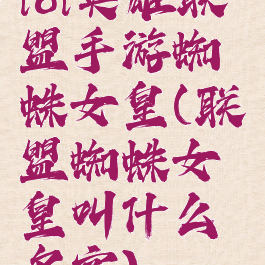 lol英雄联
盟手游蜘
蛛女皇(联
盟蜘蛛女
皇叫什么
名字)